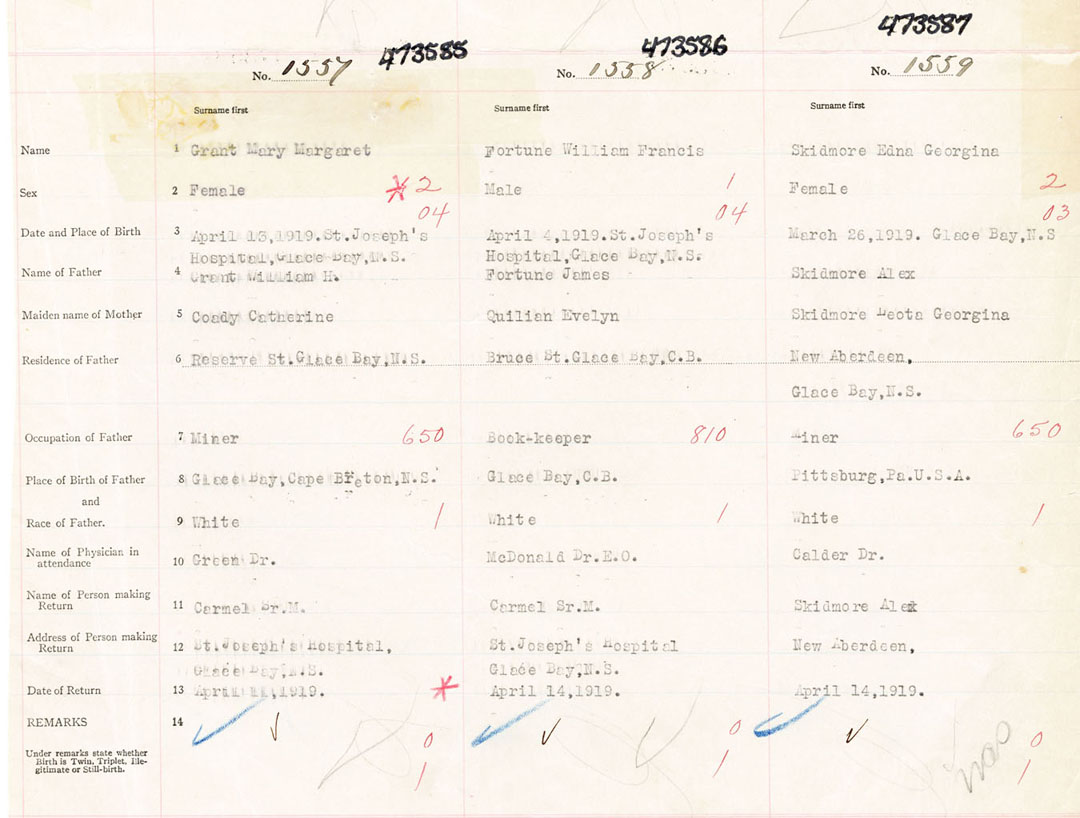 473585 473586 473587
No. 1557 No. 1558 No. 1559
Surname first Surname first Surname first
Name 1 Grant Mary Margaret Fortune William Francis Skidmore Edna Georgina
Sex 2 Female * 2 Male 1 Female 2
04 04 03
Date and Place of Birth 3 April 13,1919.St.Joseph's April 4,1919.St.Joseph's March 26,1919. Glace Bay,N.S
Hospital,Glace Bay,N.S. Hospital,Glace Bay,N.S.
Name of Father 4 Grant William H. Fortune James Skidmore Alex
Maiden name of Mother 5 Coady Catherine Quilian Evelyn Skidmore Leota Georgina
Residence of Father 6 Reserve St.Glace Bay,N.S. Bruce St.Glace Bay,C.B. New Aberdeen,
Glace Bay,N.S.
Occupation of Father 7 Miner 650 Book-keeper 810 Miner 650
Place of Birth of Father 8 Glace Bay,Cape Breton,N.S. Glace Bay,C.B. Pittsburg,Pa.U.S.A.
and
Race of Father. 9 White 1 White 1 White 1
Name of Physician in
attendance 10 Green Dr. McDonald Dr.E.O. Calder Dr.
Name of Person making
Return 11 Carmel Sr.M. Carmel Sr.M. Skidmore Alex
Address of Person making
Return 12 St.Joseph's Hospital, St.Joseph's Hospital New Aberdeen,
Glace Bay,N.S. Glace Bay,N.S.
Date of Return 13 April 1919. * April 14,1919. April 14,1919.
REMARKS 14
0 0 0
Under remarks state whether
Birth is Twin, Triplet, Ille-
gitimate or Still-birth.
1 1 1